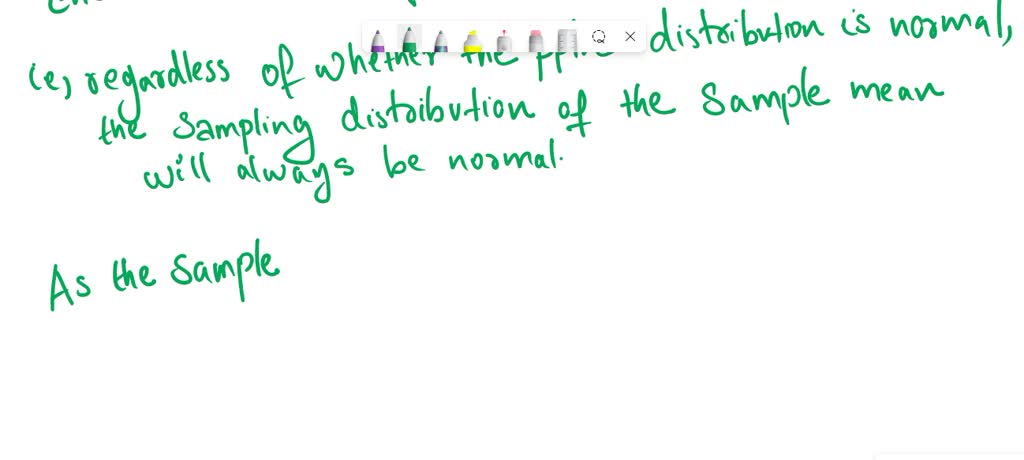 (e, regardless of whether the distribution is normal,
the sampling distribution of the sample mean
will always be normal.
As the sample